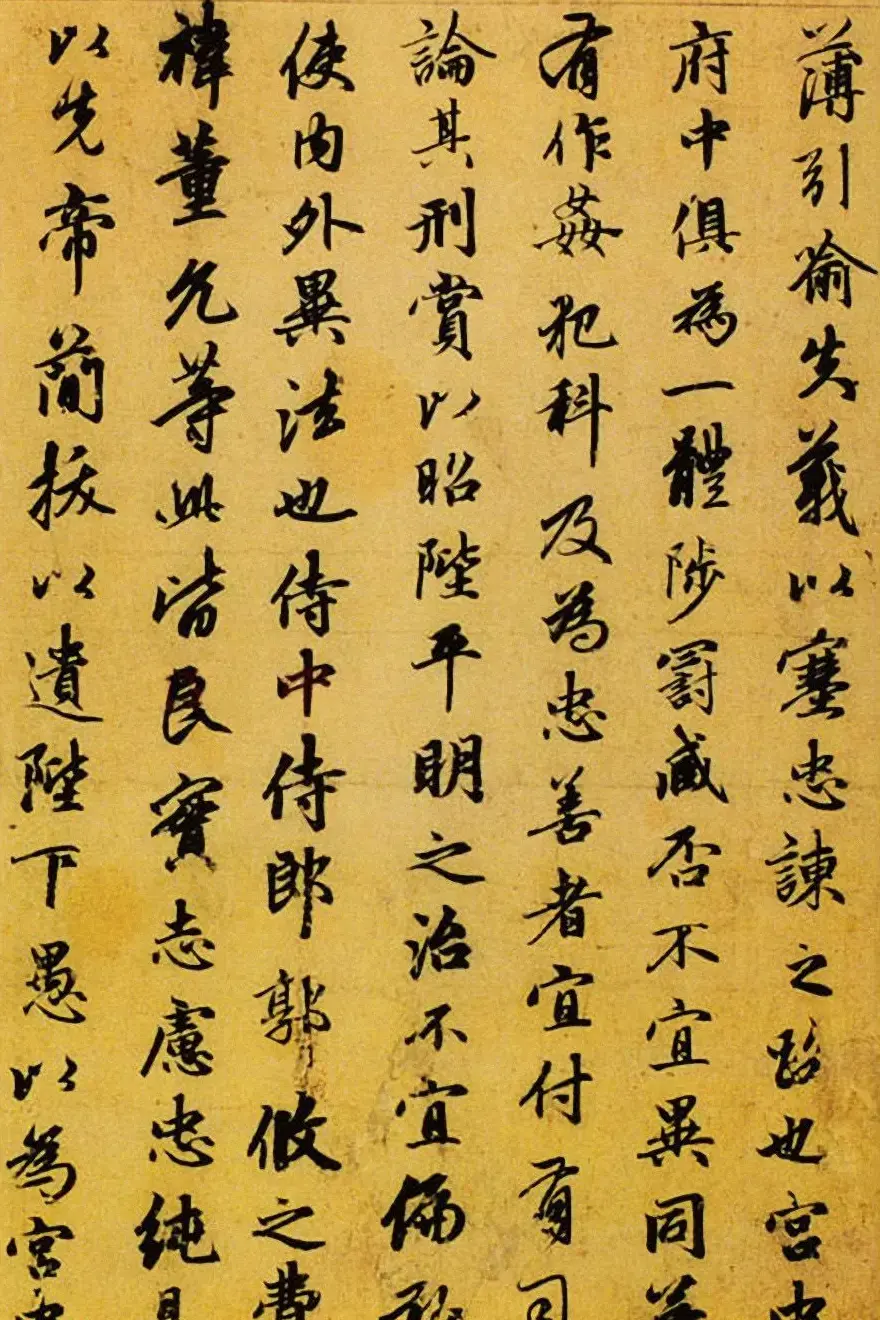 薄引喻失義以塞忠諫之路也宮中
府中俱為一體陟罰臧否不宜異同若
有作姦犯科及為忠善者宜付有司
論其刑賞以昭陛平明之治不宜偏私
使內外異法也侍中侍郎郭攸之費
禕董允等此皆良實志慮忠純是
以先帝簡拔以遺陛下愚以為宮中